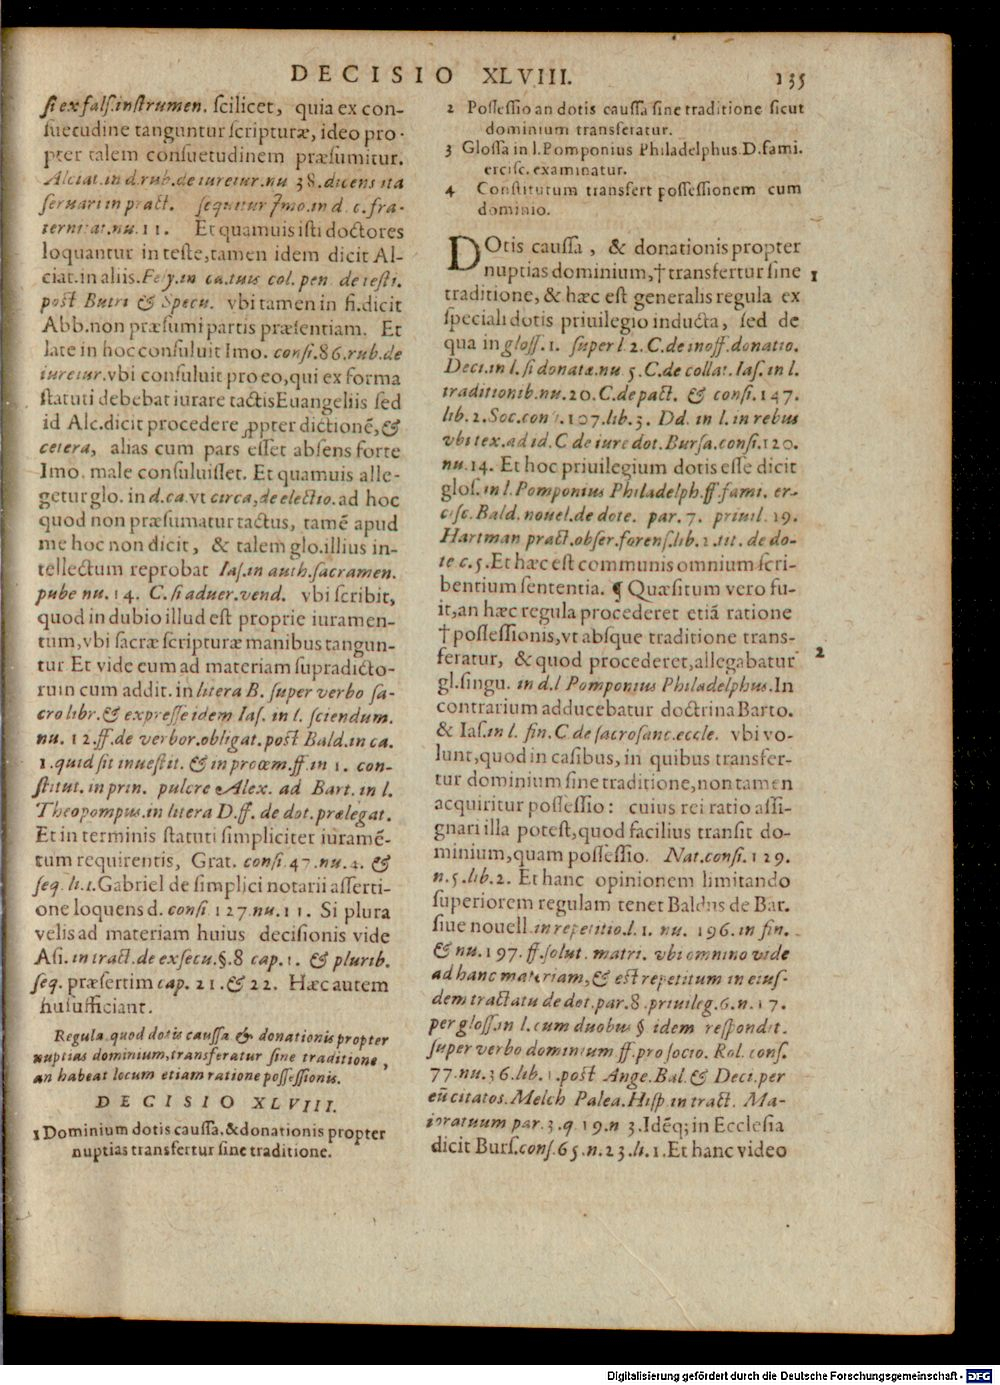 DECISIO XLVIII. 135
si ex fals. instrumen. scilicet, quia ex con-
suetudine tanguntur scripturæ, ideo pro-
pter talem consuetudinem præsumitur.
Alciat. in d. rub. de iureiur. nu 38. dicens ita
seruari in pract. sequitur Imo. in d. c. fra-
ternitat. nu. 11. Et quamuis isti doctores
loquantur in teste, tamen idem dicit Al-
ciat. in aliis. Fely. in ca. tuis col. pen de testi.
post Butri & Specu. vbi tamen in fi. dicit
Abb. non præsumi partis præsentiam. Et
late in hoc consuluit Imo. consi. 86. rub. de
iureiur. vbi consuluit pro eo, qui ex forma
statuti debebat iurare tactis Euangeliis sed
id Alc. dicit procedere ꝓpter dictionē, &
cetera, alias cum pars esset absens forte
Imo. male consuluisset. Et quamuis alle-
getur glo. in d. ca. vt circa, de electio. ad hoc
quod non præsumatur tactus, tamē apud
me hoc non dicit, & talem glo. illius in-
tellectum reprobat Ias. in auth. sacramen.
pube nu. 14. C. si aduer. vend. vbi scribit,
quod in dubio illud est proprie iuramen-
tum, vbi sacræ scripturæ manibus tangun-
tur Et vide eum ad materiam supradicto-
rum cum addit. in litera B. super verbo sa-
cro libr. & expresse idem Ias. in l. sciendum.
nu. 12. ff. de verbor. obligat. post Bald. in ca.
1. quid sit inuestit. & in proœm. ff. in 1. con-
stitut. in prin. pulcre Alex. ad Bart. in l.
Theopompus. in litera D. ff. de dot. prælegat.
Et in terminis statuti simpliciter iuramē-
tum requirentis, Grat. consi. 47. nu. 4. &
seq. li. 1. Gabriel de simplici notarii asserti-
one loquens d. consi 127. nu. 11. Si plura
velis ad materiam huius decisionis vide
Asi. in tract. de exsecu. §. 8 cap. 1. & plurib.
seq. præsertim cap. 21. & 22. Hæc autem
hui sufficiant.
Regula quod dotis caussa & donationis propter
nuptias dominium, transferatur sine traditione,
an habeat locum etiam ratione possessionis.
DECISIO XLVIII.
1 Dominium dotis caussa, & donationis propter
nuptias transfertur sine traditione.
2 Possessio an dotis caussa sine traditione sicut
dominium transferatur.
3 Glossa in l. Pomponius Philadelphus. D. fami.
ercisc. examinatur.
4 Constitutum transfert possessionem cum
dominio.
DOtis caussa, & donationis propter
nuptias dominium, † transfertur sine 1
traditione, & hæc est generalis regula ex
speciali dotis priuilegio inducta, sed de
qua in gloss. 1. super l. 2. C. de inoff. donatio.
Deci. in l. si donatæ. nu 5. C. de collat. Ias. in l.
traditionib. nu. 20. C. de pact. & consi. 147.
lib. 2. Soc. consi. 107. lib. 3. Dd. in l. in rebus
vbi tex. ad id. C de iure dot. Bursa. consi. 120.
nu. 14. Et hoc priuilegium dotis esse dicit
glos. in l. Pomponius Philadelph. ff. fami. er-
cisc. Bald. nouel. de dote. par. 7. priuil. 19.
Hartman pract. obser. forens. lib. 2. tit. de do-
te c. 5. Et hæc est communis omnium scri-
bentium sententia. ¶ Quæsitum vero fu-
it, an hæc regula procederet etiā ratione
† possessionis, vt absque traditione trans-
feratur, & quod procederet, allegabatur 2
gl. singu. in d. l Pomponius Philadelphus. In
contrarium adducebatur doctrina Barto.
& Ias. in l. fin. C de sacrosanc. eccle. vbi vo-
lunt, quod in casibus, in quibus transfer-
tur dominium sine traditione, non tamen
acquiritur possessio: cuius rei ratio assi-
gnari illa potest, quod facilius transit do-
minium, quam possessio. Nat. consi. 129.
n. 5. lib. 2. Et hanc opinionem limitando
superiorem regulam tenet Baldus de Bar.
siue nouell. in repetitio. l. 1. nu. 196. in fin.
& nu. 197. ff. solut. matri. vbi omnino vide
ad hanc materiam, & est repetitum in eius-
dem tractatu de dot. par. 8. priuileg. 6. n. 17.
per gloss. in l. cum duobus § idem respondit.
super verbo dominium ff. pro socio. Rol. cons.
77. nu. 36. lib. 1. post Ange. Bal. & Deci. per
eū citatos. Melch Palea. Hisp. in tract. Ma-
ioratuum par. 3. q. 19. n 3. Idēq; in Ecclesia
dicit Burs. cons. 65. n. 23. li. 1. Et hanc video
Digitalisierung gefördert durch die Deutsche Forschungsgemeinschaft - DFG